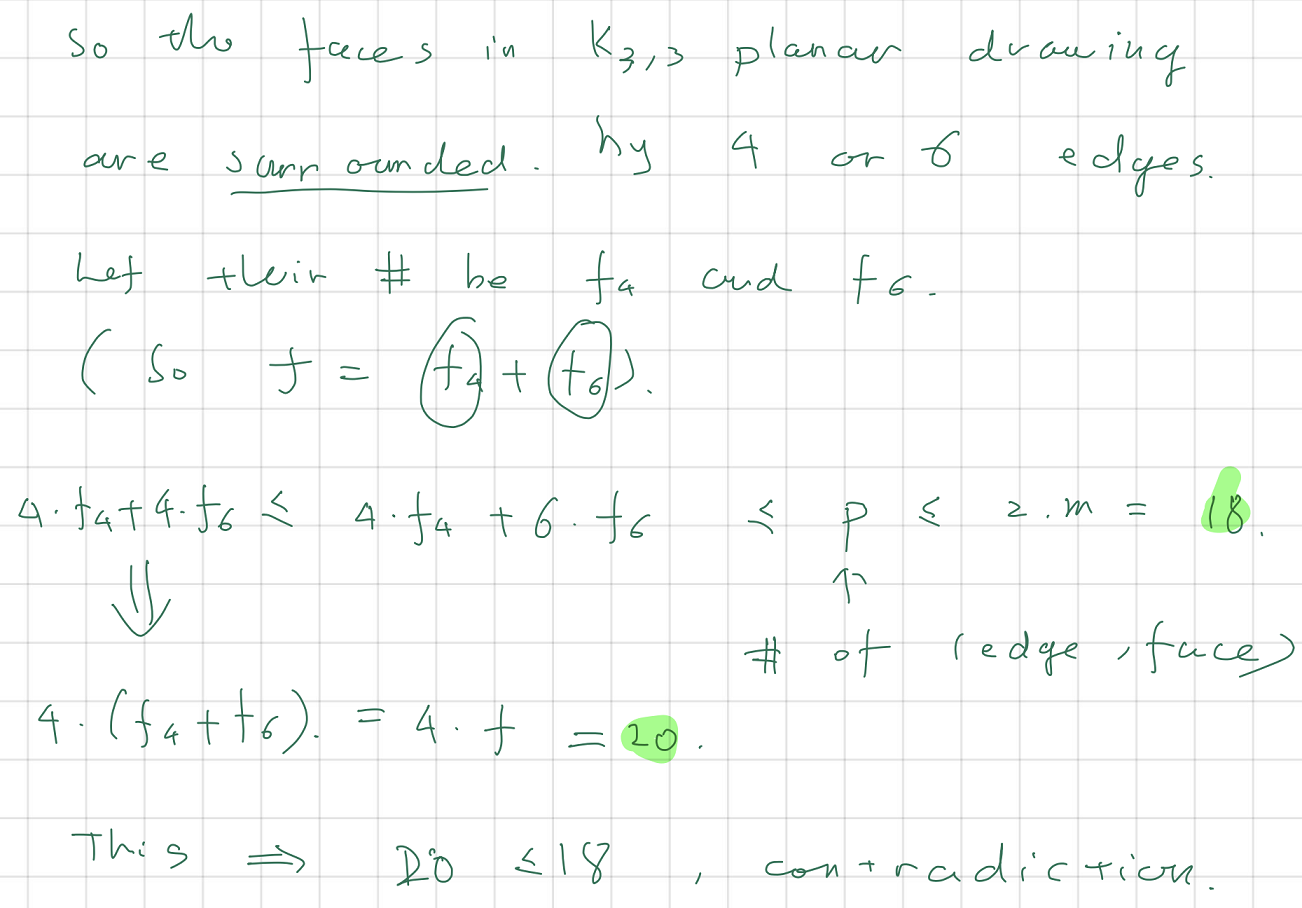 So the faces in K₃,₃ planar drawing
are surrounded. by 4 or 6 edges.
Let their # be f₄ and f₆.
( So f = f₄ + f₆ ).
4 · f₄ + 4 · f₆ ≤ 4 · f₄ + 6 · f₆ ≤ p ≤ 2 · m = 18.
⇓ ↑
# of (edge, face)
4 · (f₄ + f₆). = 4 · f = 20.
This ⇒ 20 ≤ 18 , contradiction.